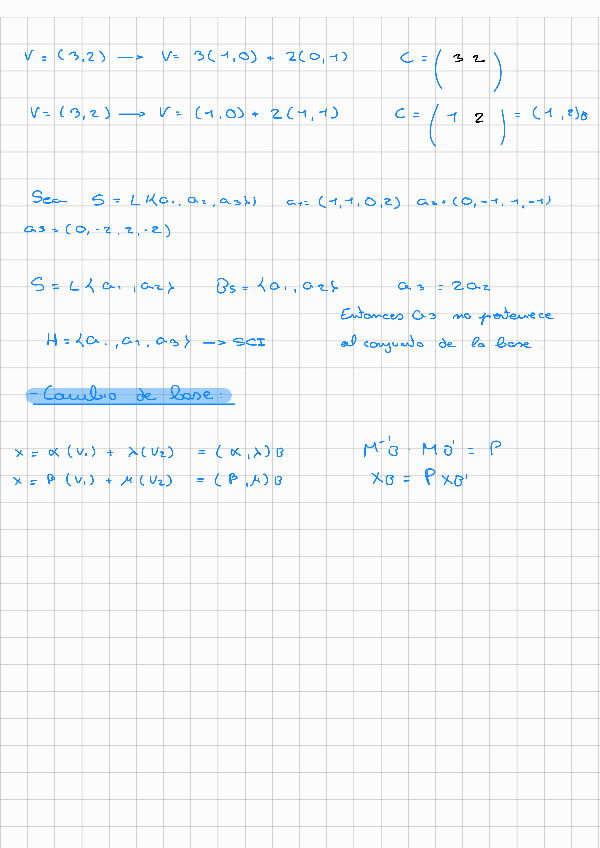 V = (3,2) → V = 3(1,0) + 2(0,1) C = ( 3 2 )
V = (3,2) → V = (1,0) + 2(1,1) C = ( 1 2 ) = (1,2)B
Sea S = L({a1, a2, a3}) a1 = (1,1,0,2) a2 = (0,-1,1,-1)
a3 = (0,-2,2,-2)
S = L{a1, a2} Bs = {a1, a2} a3 = 2a2
Entonces a3 no pertenece
H = {a1, a2, a3} → SCI al conjunto de la base
- Cambio de base:
x = α(v1) + λ(v2) = (α,λ)B M⁻¹B · MB' = P
x = β(v1) + μ(v2) = (β,μ)B XB = P XB'